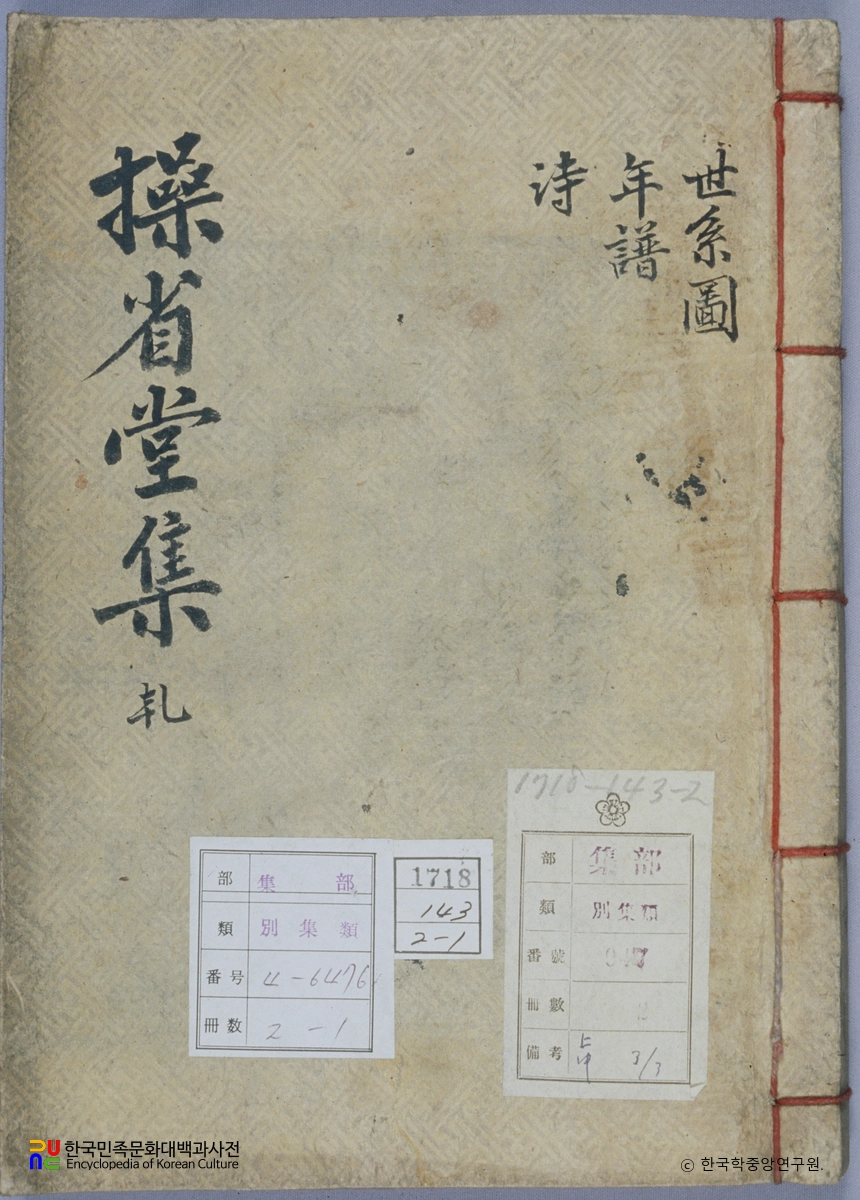 世系圖
年譜
詩
操省堂集
乹
1718-143-2
部 集部
類 別集類
番號
冊數 2
備考 3/3
1718
143
2-1
部 集部
類 別集類
番号 4-6476
冊数 2-1
한국민족문화대백과사전
Encyclopedia of Korean Culture
© 한국학중앙연구원